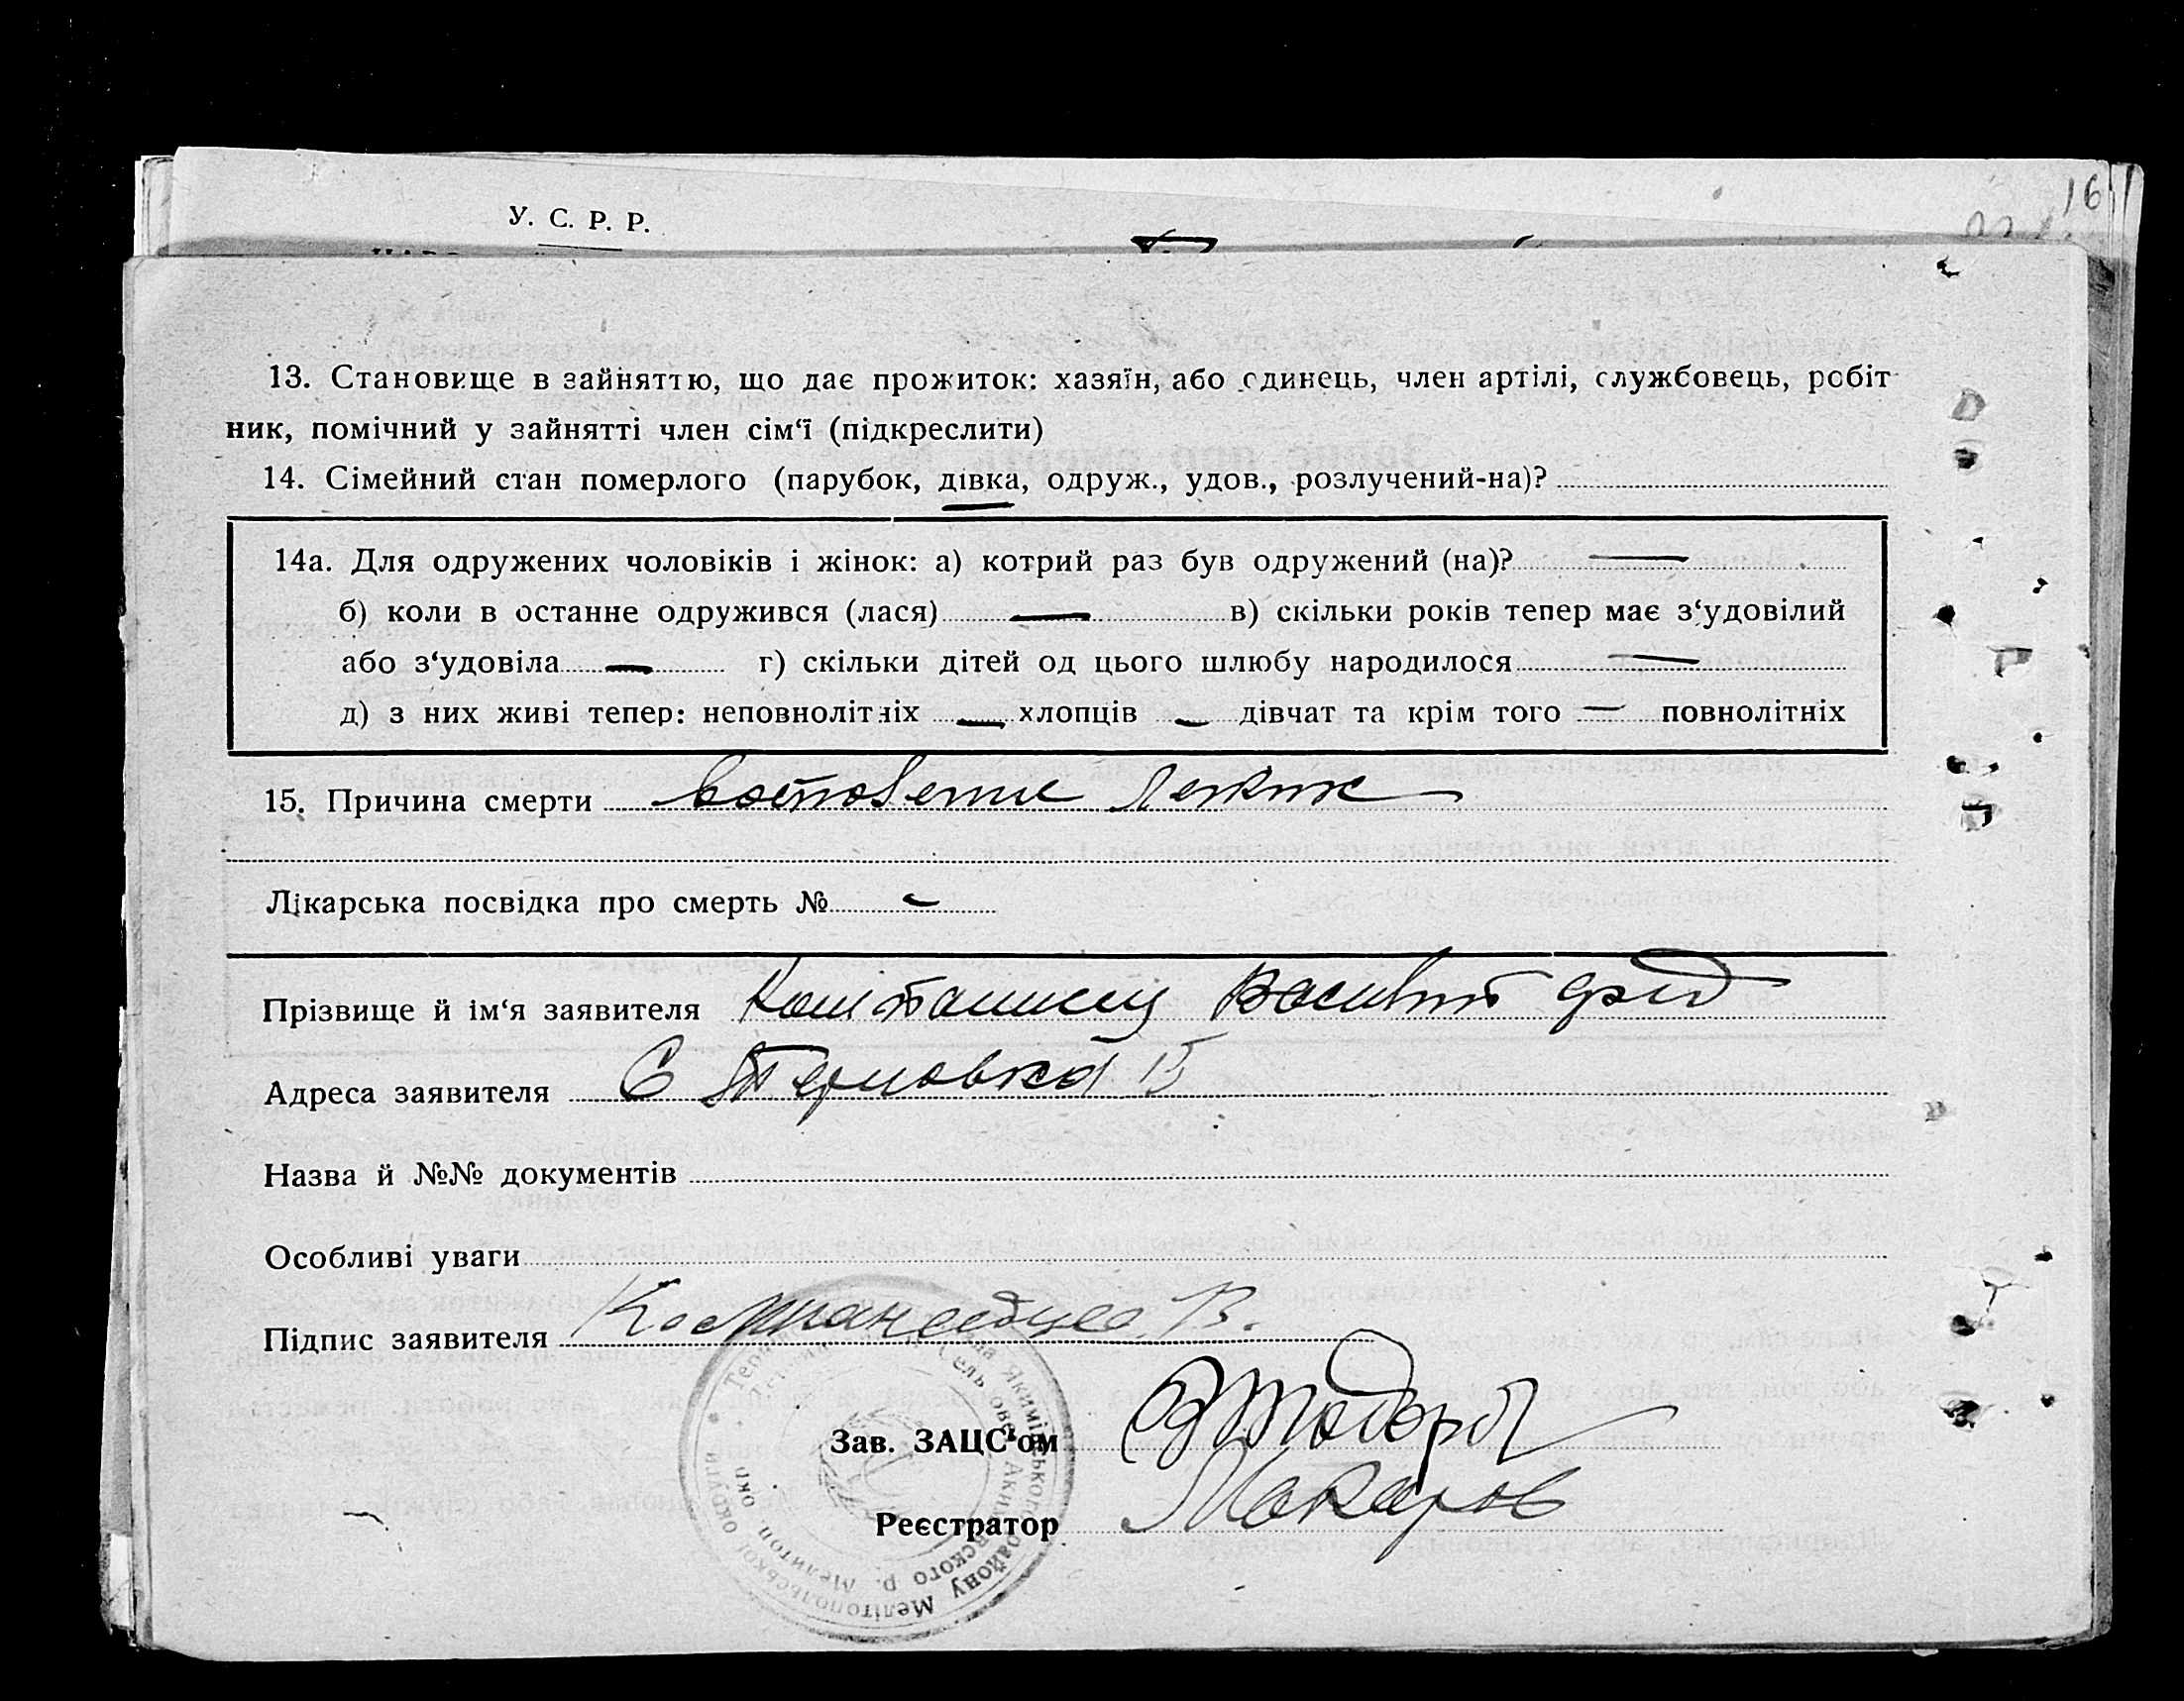 16
У. С. Р. Р.
13. Становище в зайняттю, що дає прожиток: хазяїн, або єдинець, член артілі, службовець, робіт
ник, помічний у зайнятті член сім'ї (підкреслити)
14. Сімейний стан померлого (парубок, дівка, одруж., удов., розлучений-на)?
14а. Для одружених чоловіків і жінок: а) котрий раз був одружений (на)? —
б) коли в останне одружився (лася) — в) скільки років тепер має з'удовілий
або з'удовіла — г) скільки дітей од цього шлюбу народилося —
д) з них живі тепер: неповнолітніх — хлопців — дівчат та крім того — повнолітніх
15. Причина смерти
Лікарська посвідка про смерть № —
Прізвище й ім'я заявителя
Адреса заявителя С Терновка
Назва й №№ документів
Особливі уваги
Підпис заявителя В.
Зав. ЗАЦС'ом
Реєстратор Макаров
Якимівського району Мелітопольської округи
Акимовского р. Мелитоп. окр.